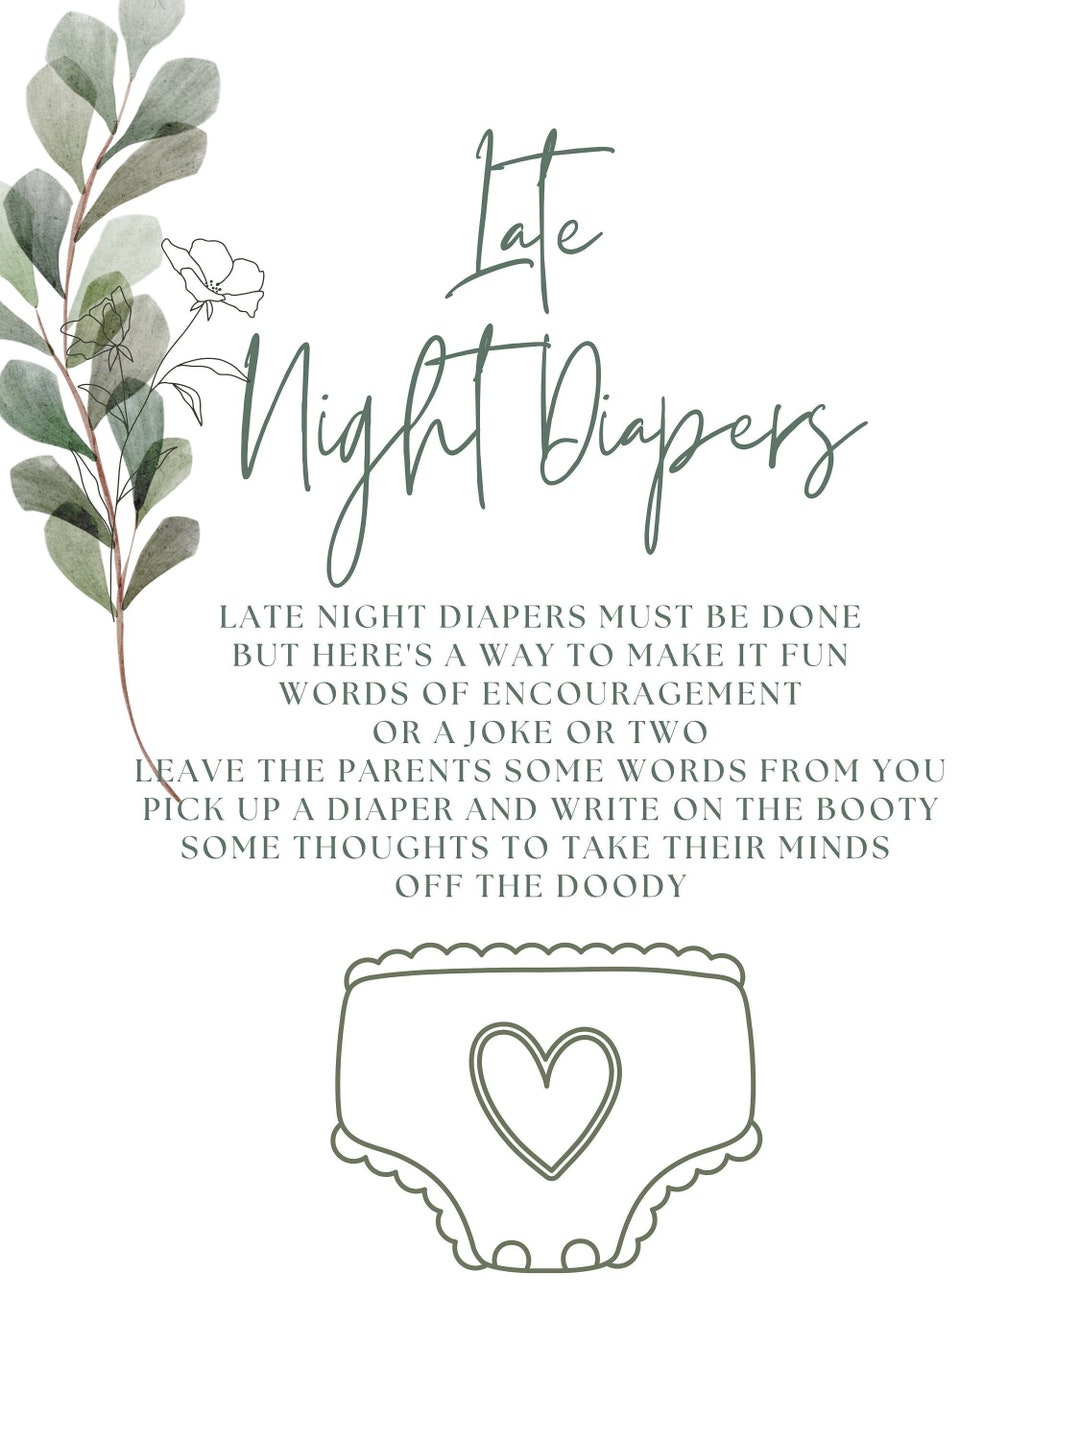 Late
Night Diapers
LATE NIGHT DIAPERS MUST BE DONE
BUT HERE'S A WAY TO MAKE IT FUN
WORDS OF ENCOURAGEMENT
OR A JOKE OR TWO
LEAVE THE PARENTS SOME WORDS FROM YOU
PICK UP A DIAPER AND WRITE ON THE BOOTY
SOME THOUGHTS TO TAKE THEIR MINDS
OFF THE DOODY